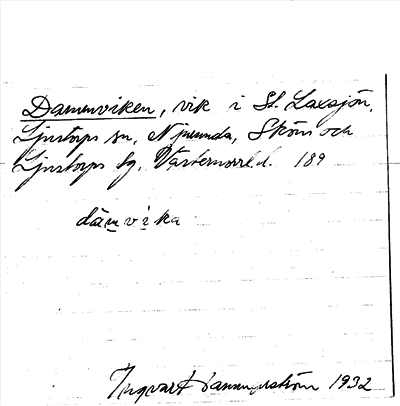 Dammviken, vik i St. Laxsjön,
Ljustorps sn, Njurunda, Sköns och
Ljustorps tg, Västernorrl.l. 189
dämvika
Ingvart 1932